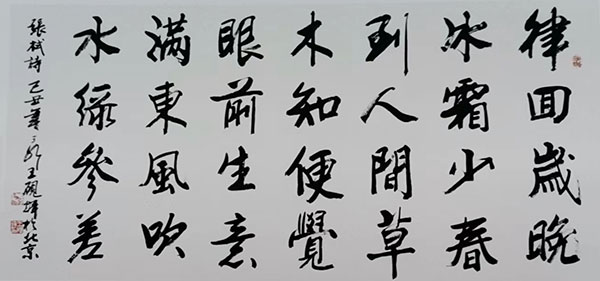 律回歲晚
冰霜少春
到人間草
木知便覺
眼前生意
滿東風吹
水綠參差
張栻詩 己丑夏 王硯輝於北京